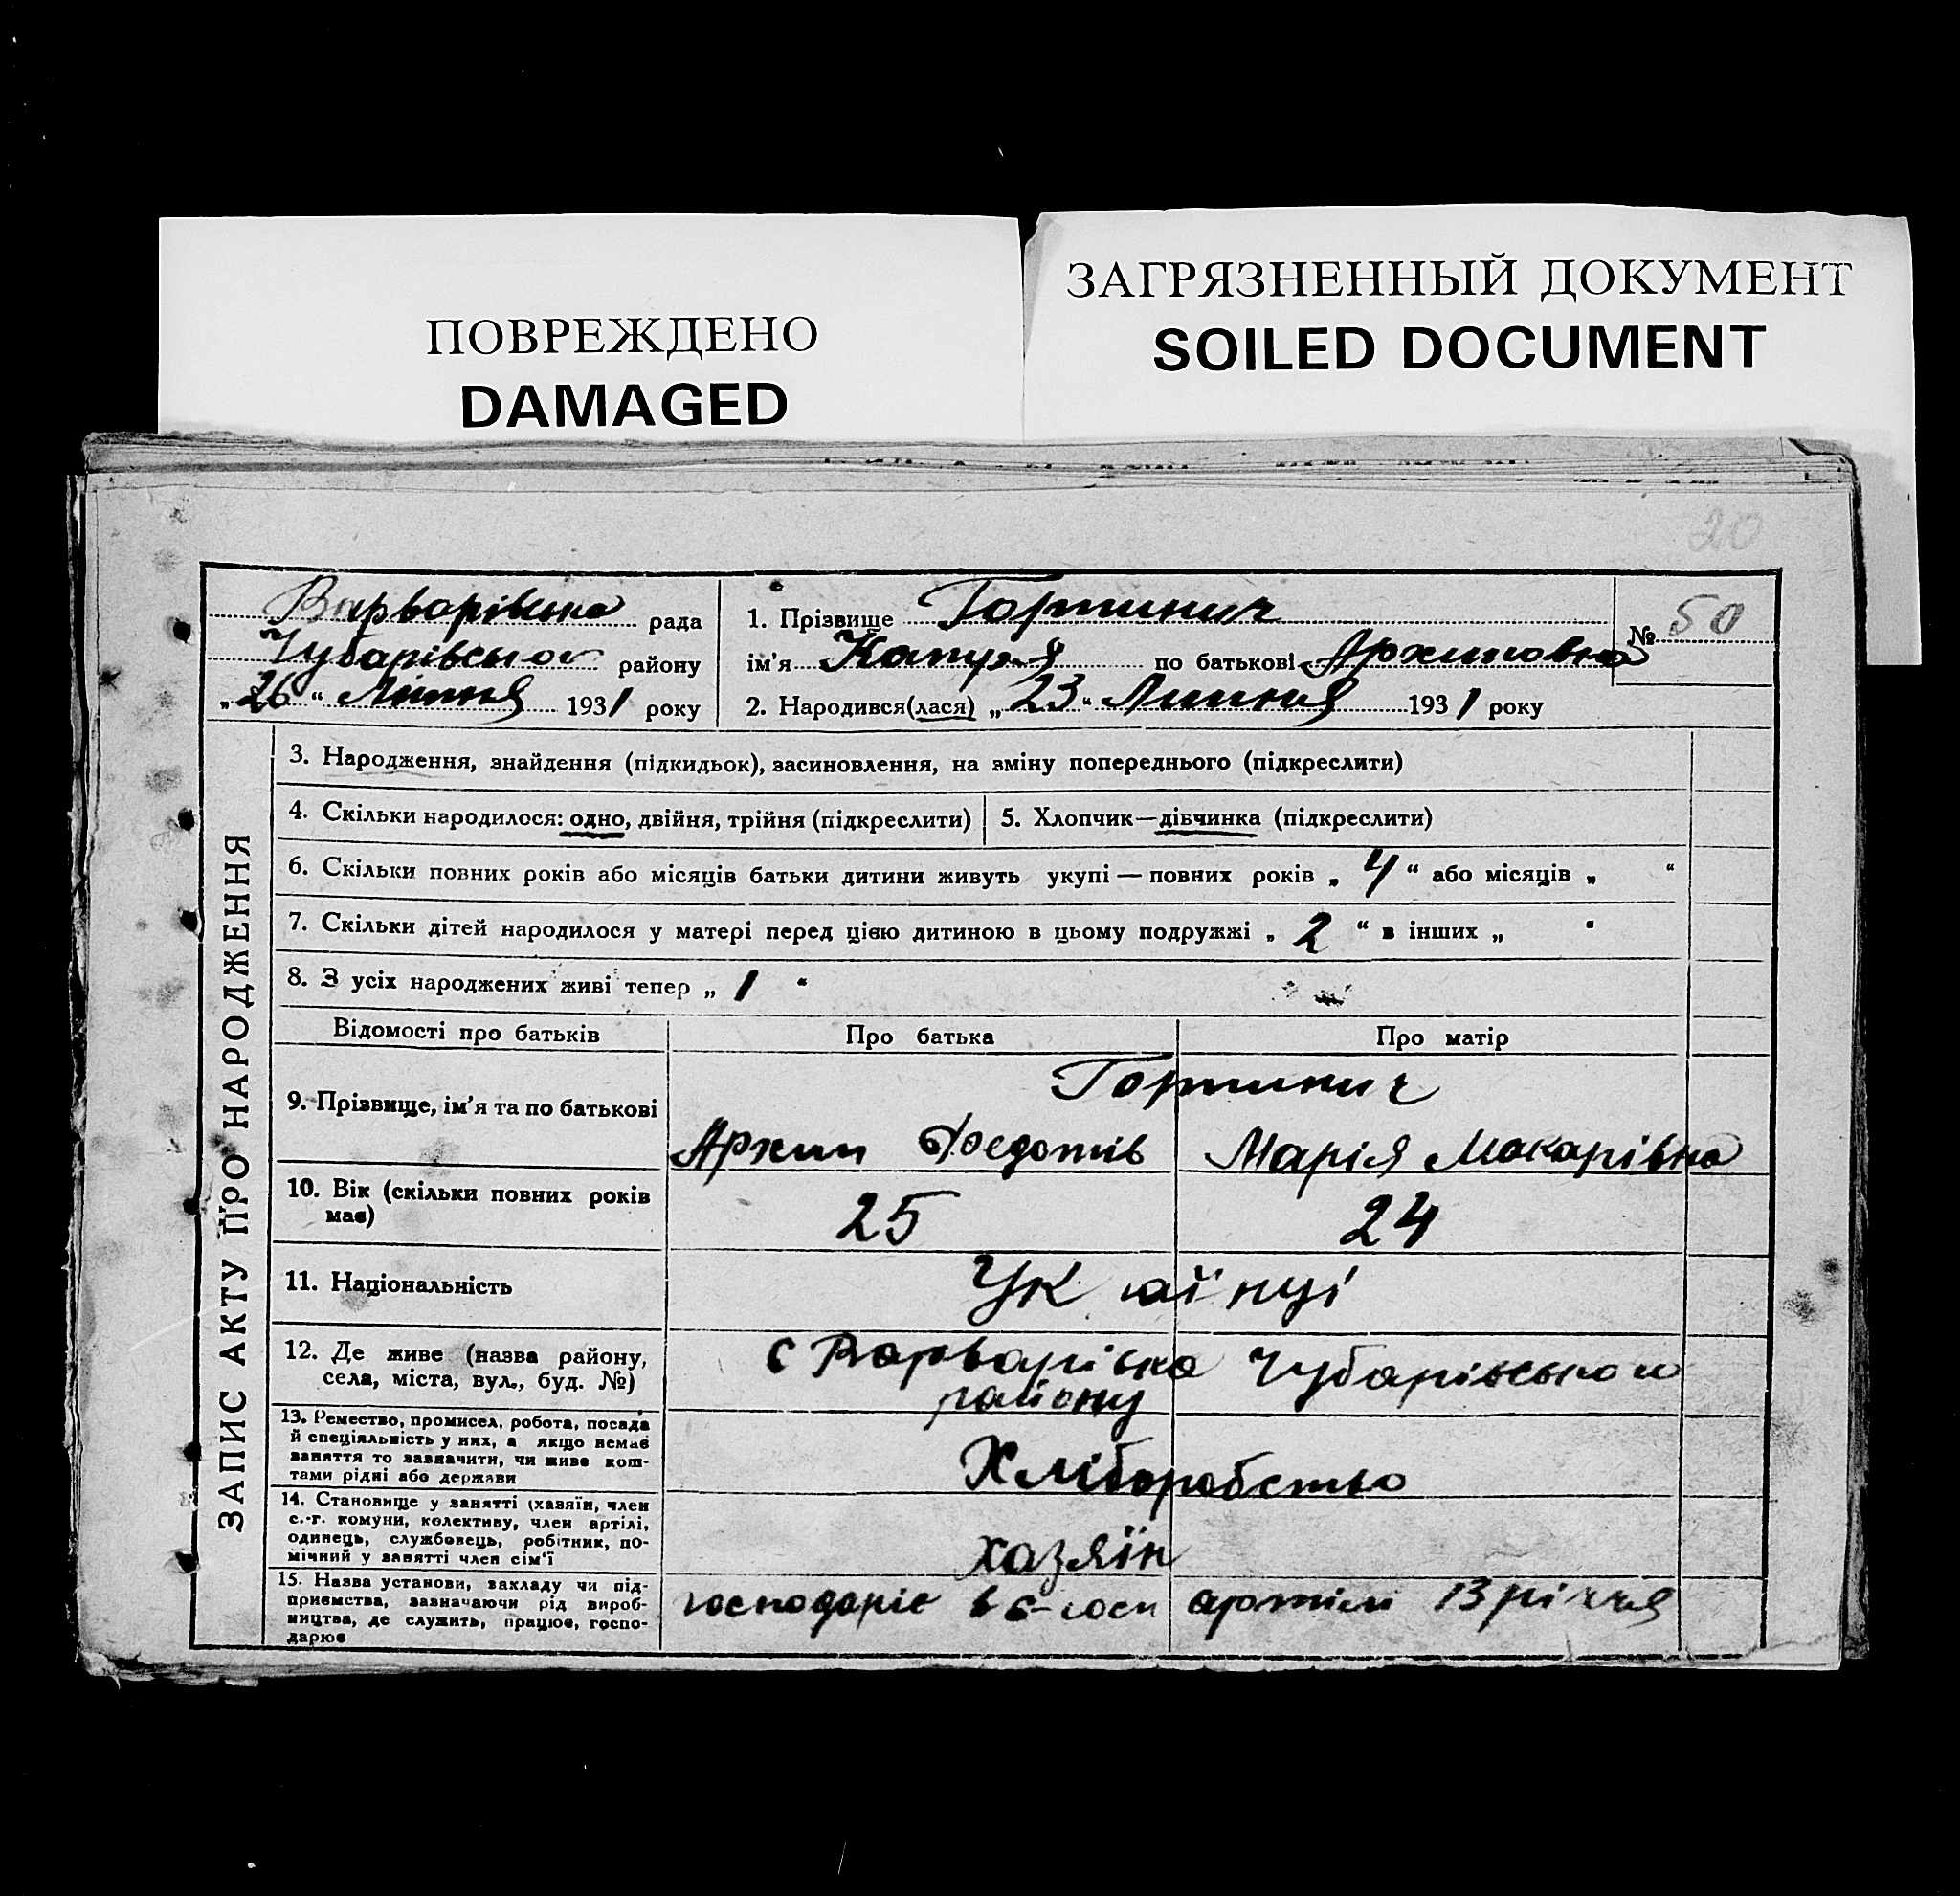 ПОВРЕЖДЕНО
DAMAGED
ЗАГРЯЗНЕННЫЙ ДОКУМЕНТ
SOILED DOCUMENT
20
Варварівська рада
Чубарівського району
„26“ Липня 1931 року
1. Прізвище Гортинич
ім'я по батькові Архиповна
№ 50
2. Народився(лася) „23“ Липня 1931 року
ЗАПИС АКТУ ПРО НАРОДЖЕННЯ
3. Народження, знайдення (підкидьок), засиновлення, на зміну попереднього (підкреслити)
4. Скільки народилося: одно, двійня, трійня (підкреслити)
5. Хлопчик—дівчинка (підкреслити)
6. Скільки повних років або місяців батьки дитини живуть укупі — повних років „ 4 “ або місяців „ “
7. Скільки дітей народилося у матері перед цією дитиною в цьому подружжі „ 2 “ в інших „ “
8. З усіх народжених живі тепер „ 1 “
Відомості про батьків Про батька Про матір
9. Прізвище, ім'я та по батькові
Гортинич
Архип Федотів Марія Макарівна
10. Вік (скільки повних років
має)
25 24
11. Національність
Ук аїнці
12. Де живе (назва району,
села, міста, вул., буд. №)
с Варварівка Чубарівського
району
13. Ремество, промисел, робота, посада
й спеціяльність у них, а якщо немає
заняття то зазначити, чи живе кош-
тами рідні або держави
Хліборобство
14. Становище у занятті (хазяїн, член
с.-г. комуни, колективу, член артілі,
одинець, службовець, робітник, по-
мічний у занятті член сім'ї
хазяїн
15. Назва установи, закладу чи під-
приємства, зазначаючи рід вироб-
ництва, де служить, працює, госпо-
дарює
господаріє в с-госп артілі 13 річчя